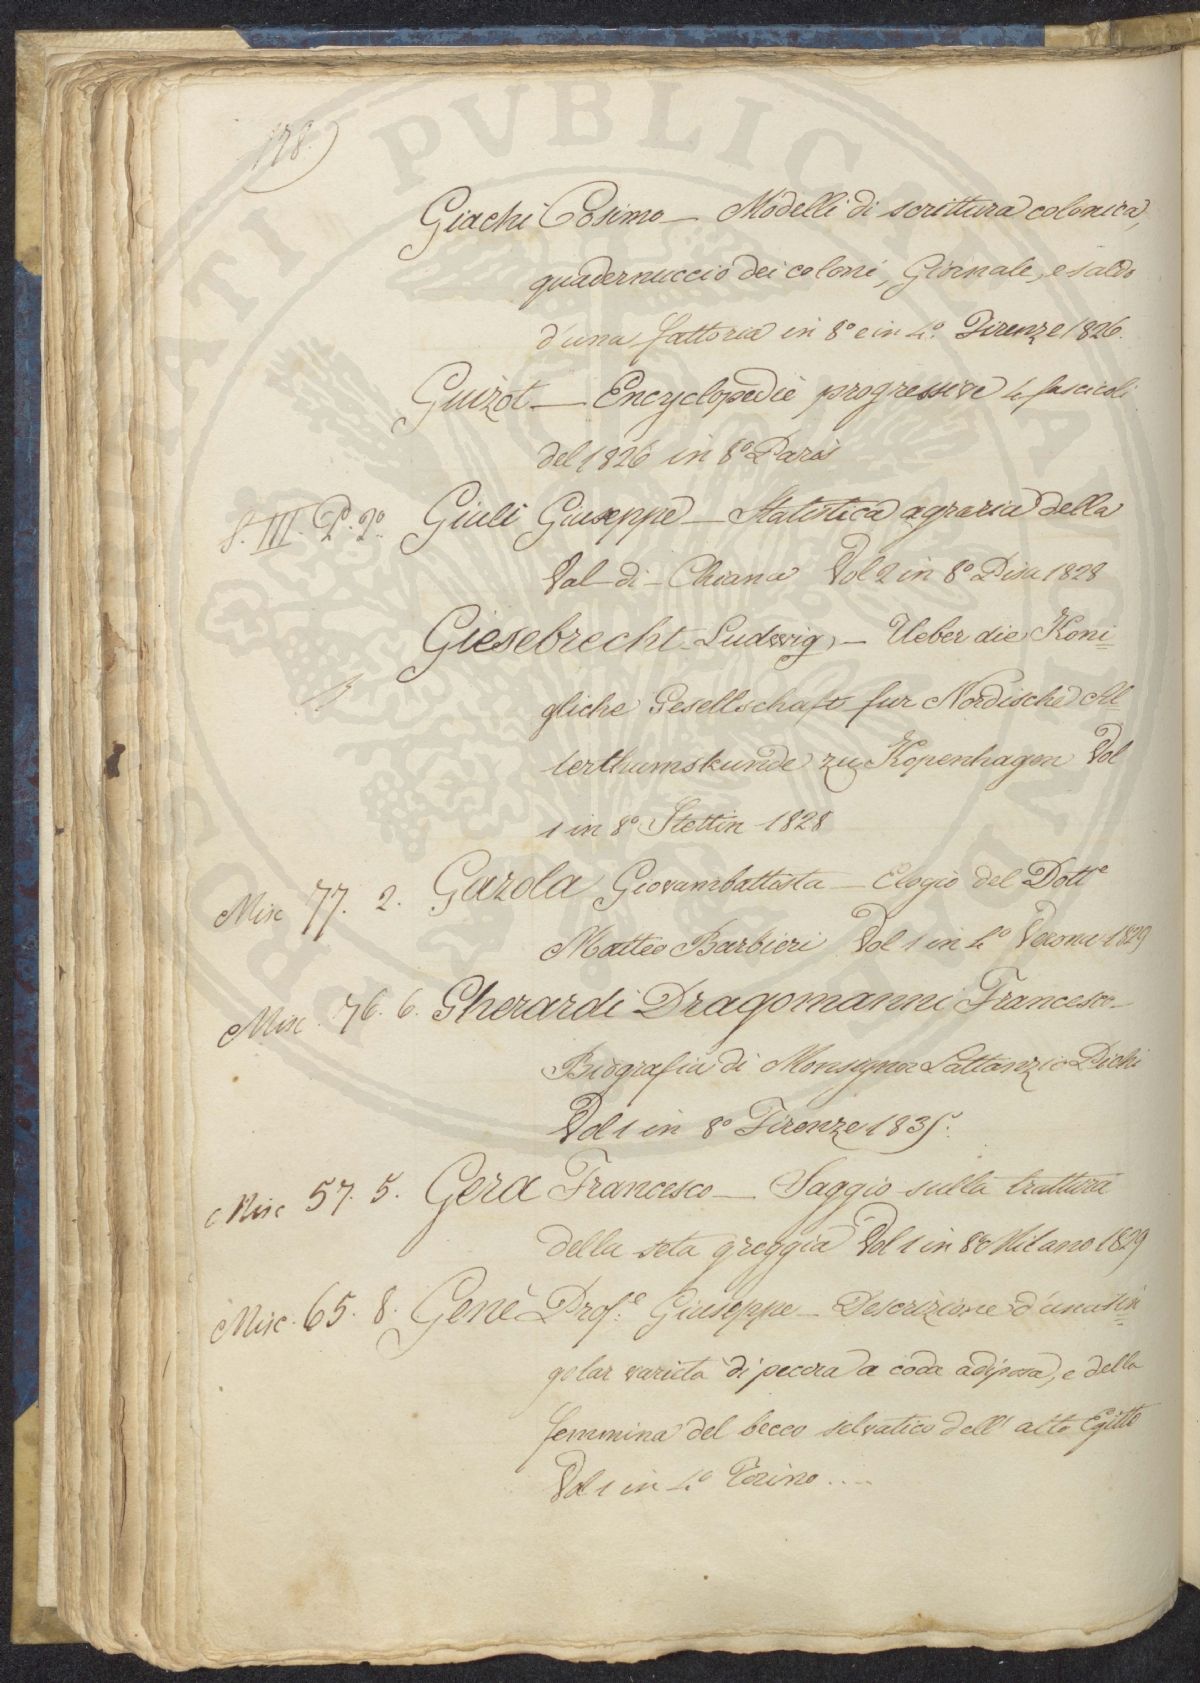 128.
Giachi Cosimo — Modelli di scrittura colonica,
quadernuccio dei coloni, Giornale, e saldo
d'una fattoria in 8° e in 4.° Firenze 1826.
Guizot — Encyclopedie progressive 4 fascicoli
del 1826 in 8° Paris
S. III. P. 2° Giuli Giuseppe — Statistica agraria della
Val-di-Chiana Vol 2 in 8° Pisa 1828
Giesebrecht Ludwig, — Ueber die Koni=
gliche Gesellschaft fur Nordische Al=
terthumskunde zu Kopenhagen Vol
1 in 8° Stettin 1828
Misc 77. 2. Gazola Giovambattista — Elogio del Dott.e
Matteo Barbieri Vol 1 in 4.° Verona 1829
Misc. 76. 6. Gherardi Dragomanni Francesco —
Biografia di Monsignor Lattanzio Pichi
Vol 1 in 8° Firenze 1835.
Misc 57. 5. Gera Francesco — Saggio sulla trattura
della seta greggia Vol 1 in 8° Milano 1829
Misc. 65. 8. Genè Prof.e Giuseppe — Descrizione d'una sin=
golar varietà di pecora a coda adiposa, e della
femmina del becco selvatico dell' alto Egitto
Vol 1 in 4.° Torino ....